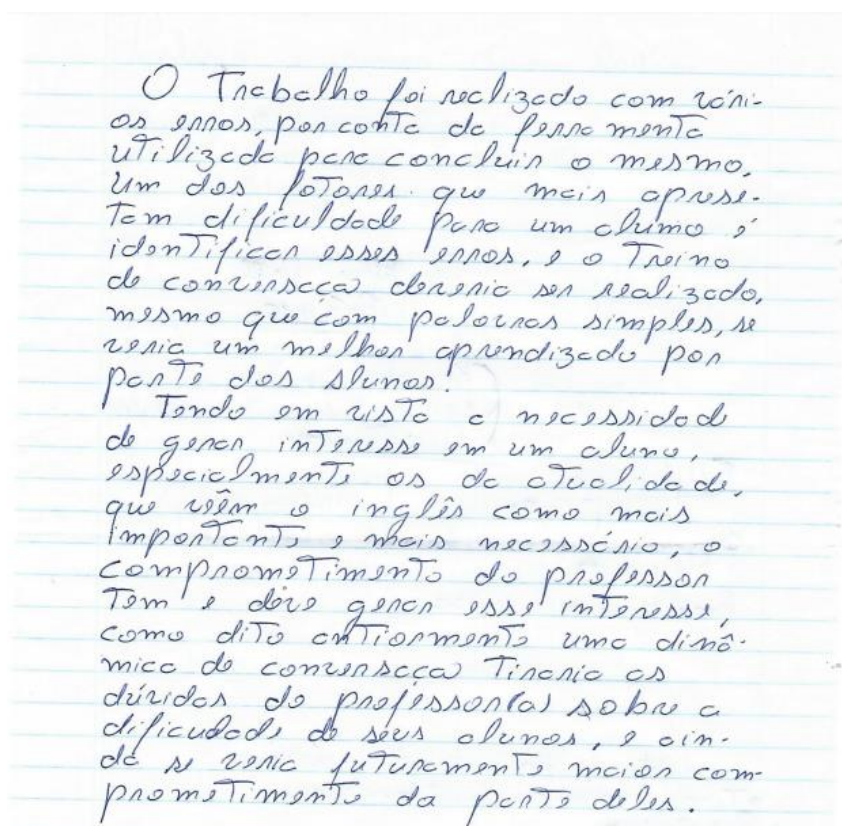 O Trabalho foi realizado com vári-
os erros, por conta da ferramenta
utilizada para concluir o mesmo,
um dos fatores que mais aprese-
tam dificuldade para um aluno é
identificar esses erros, e o Treino
de conversaçao deveria ser realizado,
mesmo que com palavras simples, se
veria um melhor aprendizado por
parte dos alunos.
Tendo em vista a necessidade
de gerar interesse em um aluno,
especialmente os da atualidade,
que vêem o inglês como mais
importante e mais necessário, o
comprometimento do professor
Tem e deve gerar esse interesse,
como dito antiormente uma dinâ-
mica de conversaçao Tiraria as
dúvidas do professor(a) sobre a
dificudade de seus alunos, e ain-
da se veria futuramente maior com-
prometimento da parte deles.